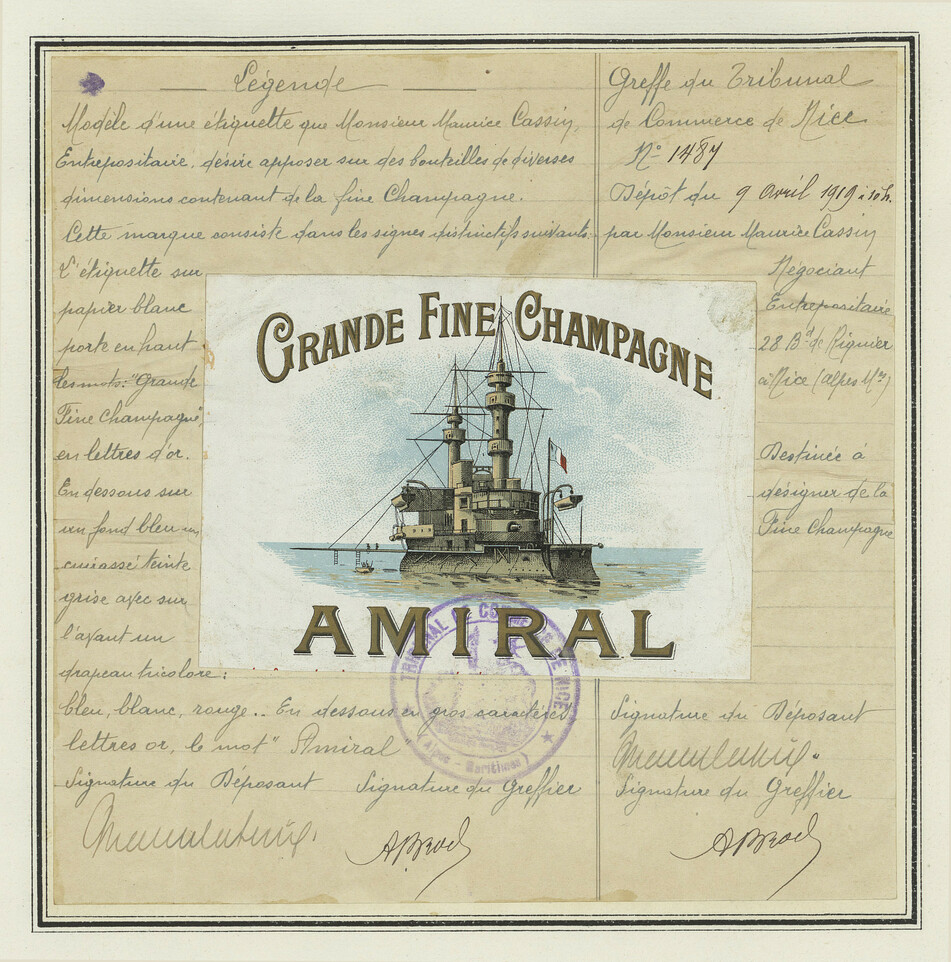 Légende
Modèle d'une étiquette que Monsieur Maurice Cassin,
Entrepositaire, désire apposer sur des bouteilles de diverses
dimensions contenant de la fine Champagne.
Cette marque consiste dans les signes distinctifs suivants:
L'étiquette sur
papier blanc
porte en haut
les mots: "Grande
Fine Champagne",
en lettres d'or.
En dessous sur
un fond bleu un
cuirassé teinte
grise avec sur
l'avant un
drapeau tricolore:
bleu, blanc, rouge. En dessous en gros caractères
lettres or, le mot "Amiral
Signature du Déposant
Signature du Greffier
GRANDE FINE CHAMPAGNE
AMIRAL
TRIBUNAL DE COMMERCE DE NICE
(Alpes-Maritimes)
Greffe du Tribunal
de Commerce de Nice
N° 1487
Dépôt du 9 Avril 1919 à 10h.
par Monsieur Maurice Cassin
Négociant
Entrepositaire
28 Bd de Riquier
à Nice (Alpes Mmes)
Destinée à
désigner de la
Fine Champagne
Signature du Déposant
Signature du Greffier